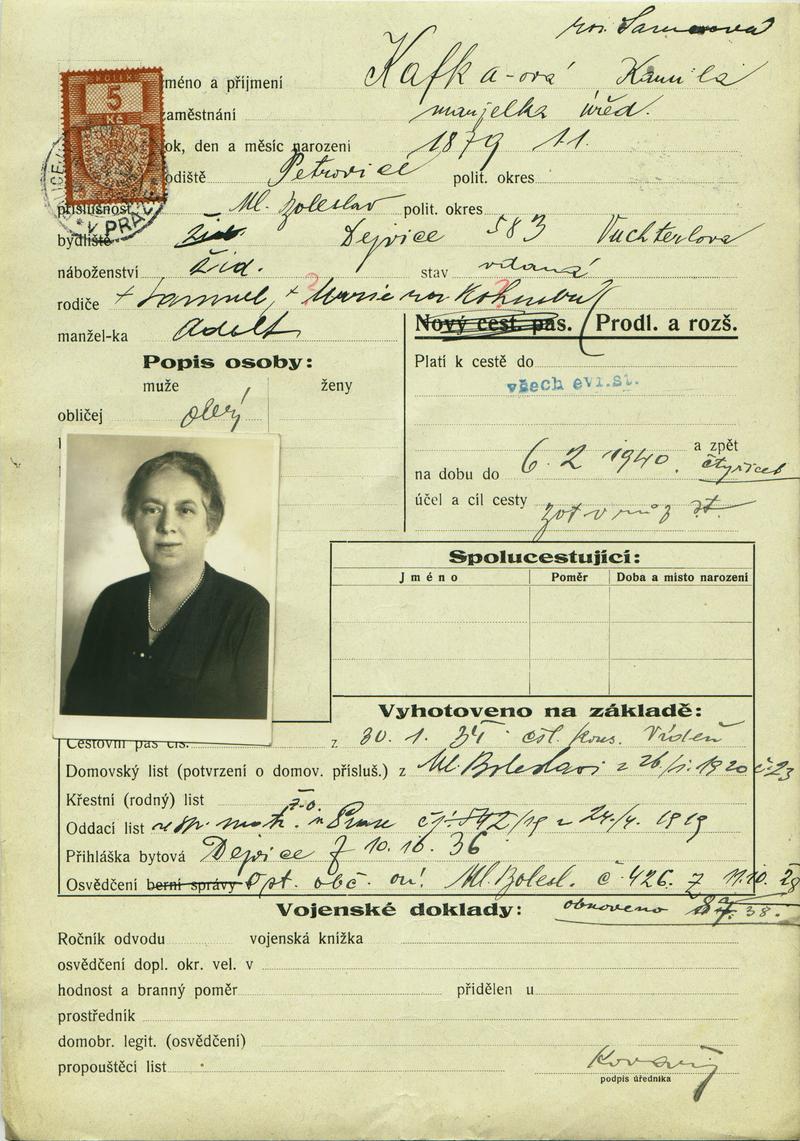 roz.
KOLEK
5
Kč
V PRAZE
méno a příjmení Kafka-ová Kamila
zaměstnání manželka úřed.
ok, den a měsíc narození 1879 11.
odiště Petrovice polit. okres
příslušnost Ml. Boleslav polit. okres
bydliště Dejvice 583 Vuchterlova
náboženství žid. stav vdaná
rodiče + Samuel, + Marie roz
manžel-ka Adolf
Nový cest. pas. Prodl. a rozš.
Popis osoby:
muže ženy
obličej
Platí k cestě do
všech evr. st.
na dobu do 6. 2 1940. a zpět
čtyřicet
účel a cíl cesty
Spolucestující:
Jméno Poměr Doba a místo narození
Vyhotoveno na základě:
Cestovní pas čís. z 30. 1. čsl. kons. Vídeň
Domovský list (potvrzení o domov. přísluš.) z Ml. Boleslavi z 1920 č. 23
Křestní (rodný) list
Oddací list matr. 24./4. 1919
Přihláška bytová Dejvice z 10. 10. 36
Osvědčení berní správy o st. obč. Ml. Bolesl. č. 426. z 11. 10. 28
obnoveno 38.
Vojenské doklady:
Ročník odvodu vojenská knížka
osvědčení dopl. okr. vel. v
hodnost a branný poměr přidělen u
prostředník
domobr. legit. (osvědčení)
propouštěcí list
podpis úředníka